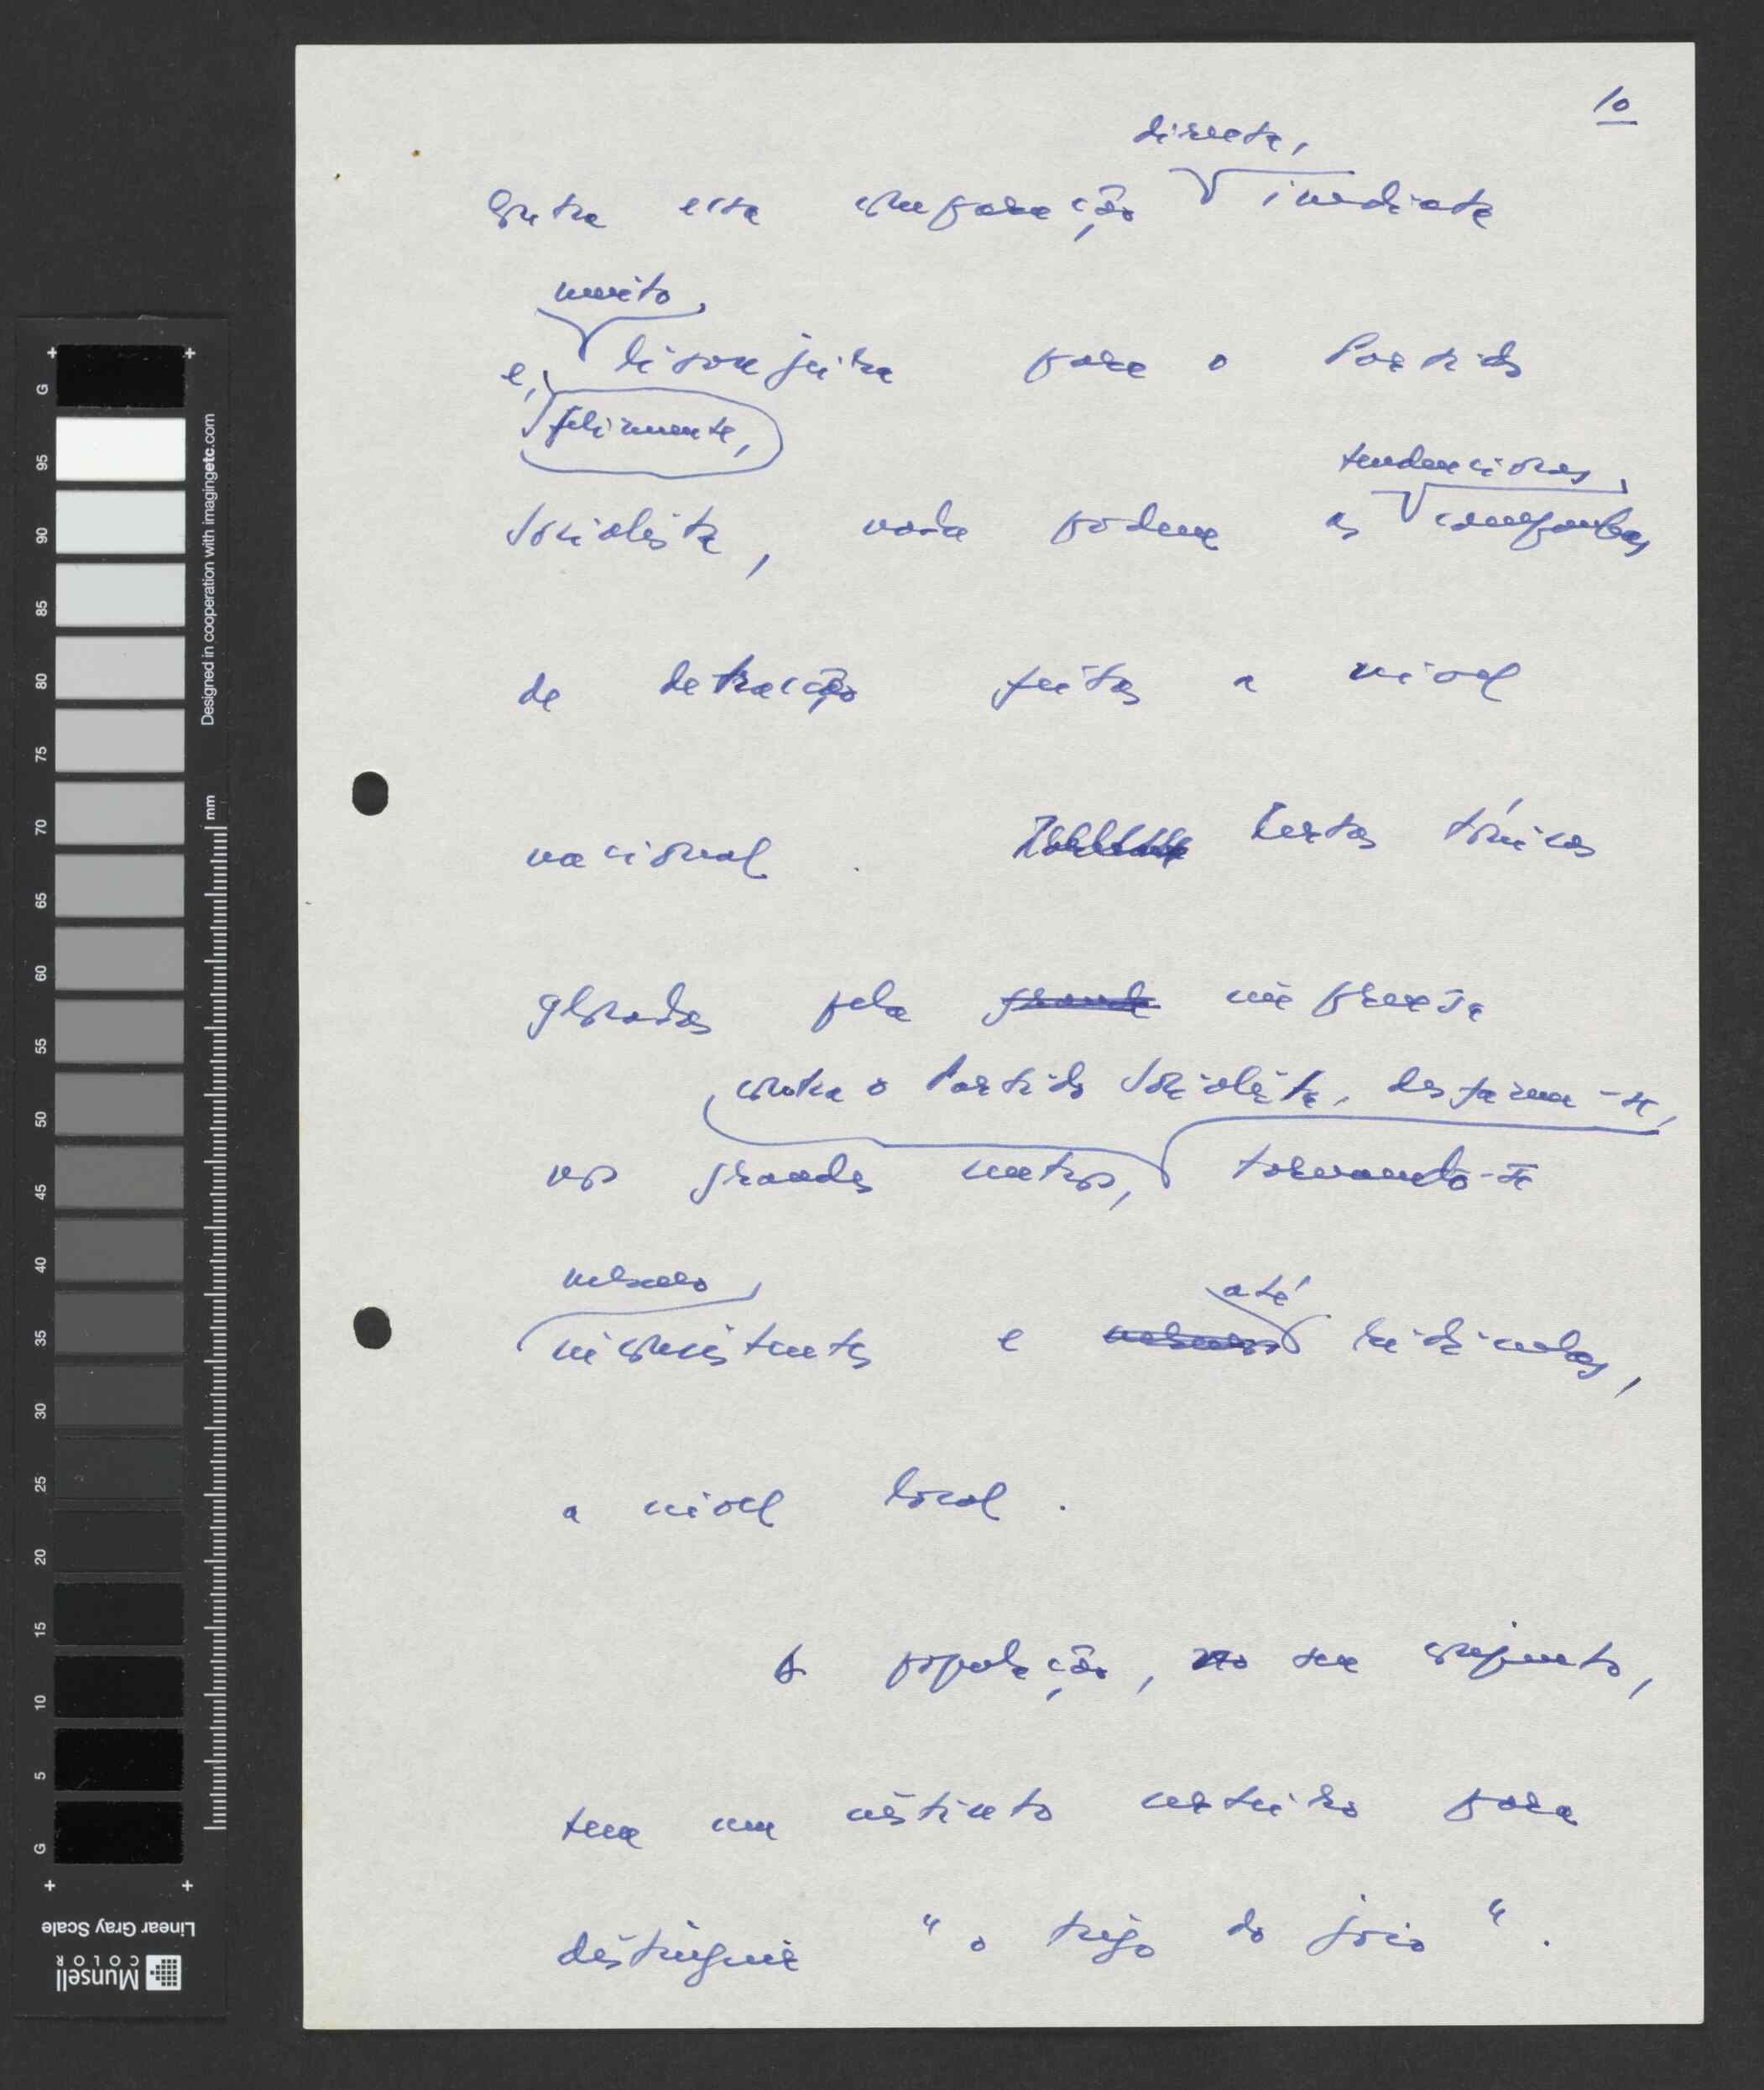 10
directa,
Contra essa comparação imediata
muito
e, lisonjeira para o Partido
felizmente,
tendenciosas
Socialista, nada podem as campanhas
de detracção feitas a nível
nacional. Certas tónicas
glosadas pela grande imprensa
contra o Partido Socialista, desfazem-se,
nos grandes centros, tornando-se
mesmo
inconsistentes e até
mesmo ridículas,
a nível local.
A população, no seu conjunto,
tem um instinto certeiro para
distinguir "o trigo do joio".
+ +
G
95
90
85
80
75
70
65
60
55
50
45
40
35
30
25
20
15
10
5
G
+ +
mm
Designed in cooperation with imagingetc.com
Linear Gray Scale
Munsell
COLOR